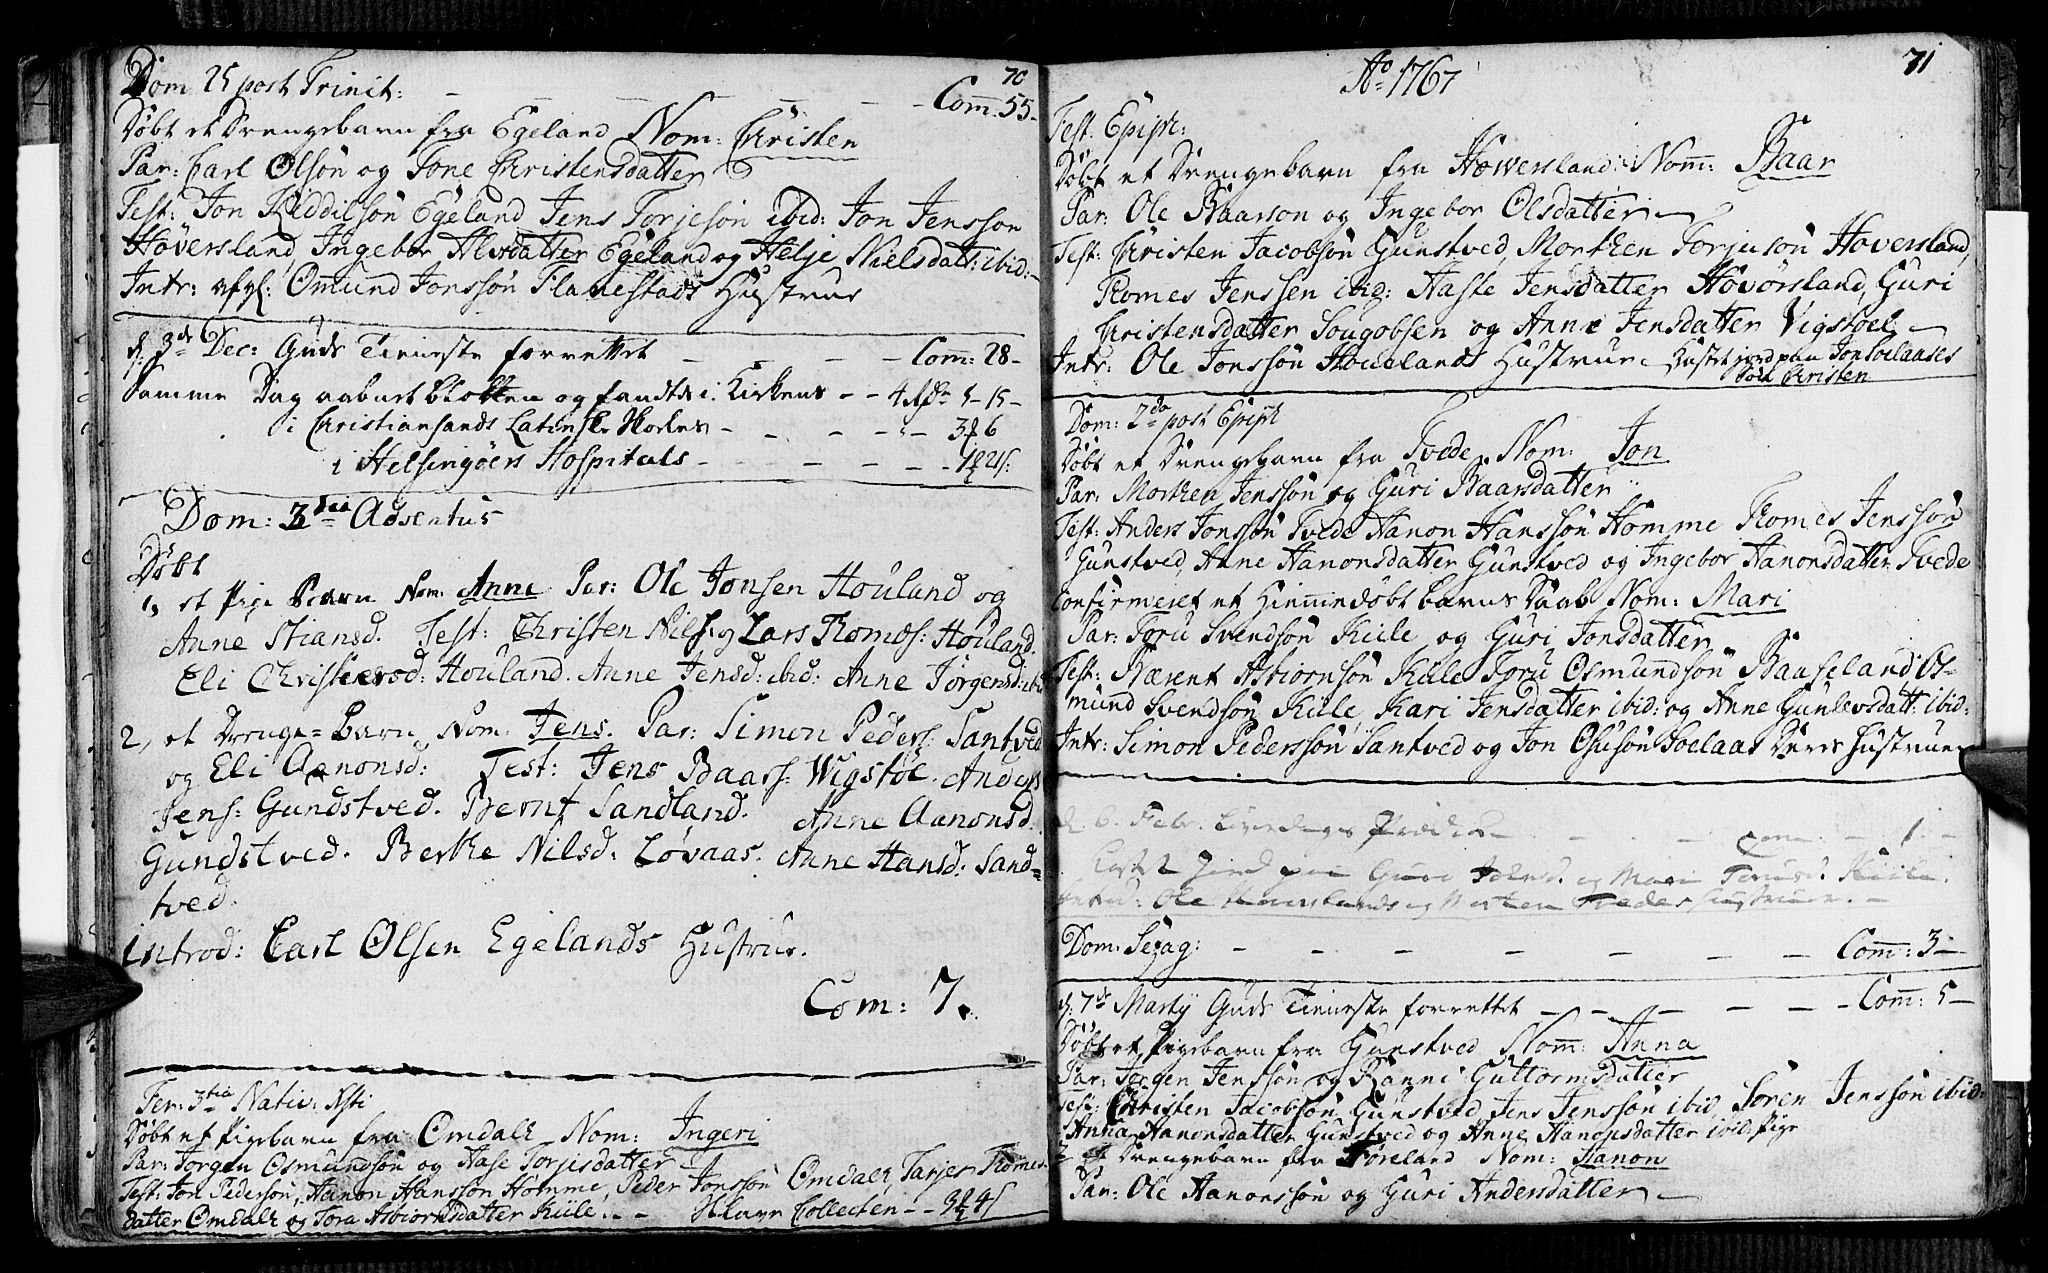 70
Dom 25 post Trinit: Com̄: 55
Døbt et Drengebarn fra Egeland Nom: Christen
Par: Carl Olsøn og Tone Christensdatter
Test: Jon Kiddilsøn Egeland Jens Torjesøn ibid: Jon Jenssøn
Høversland, Ingebor Alvsdatter Egeland og Helje Nielsdatt: ibid:
Intr: Omund Jonssøn Flanestads Hustrue
d: 3de Dec: Guds Tieneste forrettet Com̄: 28
Samme Dag aabnet Blokken og fandtes i Kirkens 4
i Christiansands Latinske Skoles
i Helsingøers Hospitals
Dom: 3tia Adventus
Døbt
1, et Pige Barn Nom: Anne Par: Ole Jonsen Houland og
Anne Stiansd. Test: Christen Nils: og Lars Thomæs: Houland.
Eli Christensd: Houland. Anne Jensd: ibid: Anne Jørgensd: ibid
2, et Drenge-Barn Nom: Jens. Par: Simon Peders: Santved
og Eli Aanonsd: Test: Jens Baars: Wigstøl. Anders
Jens: Gundstved. Bernt Sandland. Anne Aanonsd.
Gundstved. Berthe Nilsd: Løvaas. Anne Hansd: Sand=
tved.
introd: Carl Olsen Egelands Hustrue.
Com: 7.
Fer: 3tia Nativ: Xsti
Døbt et Pigebarn fra Omdalk Nom: Ingeri
Par: Jørgen Osmundsøn og Aase Torjisdatter
Test: Jon Pedersøn, Aanon Hanssøn Homme, Peder Jonssøn Omdalk, Tarjer Thomes
datter Omdalk og Tora Asbiornsdatter Kiile. Collecten
71
Ao 1767
Fest. Epiph:
Døbt et Drengebarn fra Høwersland: Nom̄: Baar
Par: Ole Baarson og Ingebor Olsdatter
Test: Christen Jacobsøn Gunstved, Morthen Torjusøn Høversland,
Thomes Jenssen ibid: Aaste Jensdatter Høversland, Guri
Christensdatter og Anne Jensdatter Vigstøel
Intr: Ole Jonssøn Houelands Hustrue. Kastet jord paa Jon Soelaases
Søn Christen
Dom: 2da post Epiph
Døbt et Drengebarn fra Tvede Nom: Jon
Par: Morthen Jenssøn og Guri Baarsdatter
Test: Anders Jonssøn Tvede Aanon Hanssøn Homme Thomes Jenssøn
Gunstved, Anne Aanonsdatter Gunstved og Ingebor Aanonsdatter Tvede
Confirmeret et Hiemmedøbt Barns Daab Nom: Mari
Par: Toru Svendsøn Kiile og Guri Jonsdatter
Test: Bærent Asbiornsøn Kiile Toru Osmundsøn Baaseland Os=
mund Svendsøn Kiile, Kari Jensdatter ibid: og Anne Gunlevsdatt: ibid:
Intr: Simon Pederssøn Santved og Jon Osusøn Soelaas Deres Hustruer
d. 6. Febr. Com: 1.
Kastet Jord paa Guri og Mari
Introd: Ole Høverslands og Morten Tvedes Hustruer.
Dom: Sexag: Com̄: 3
d: 7de Martij Guds Tieneste forrettet Com̄: 5
Døbt et Pigebarn fra Gunstved Nom̄: Anna
Par: Jørgen Jenssøn og Ranni Guttormsdatter
Test: Christen Jacobsøn Gunstved, Jens Jenssøn ibid, Søren Jenssøn ibid:
Anna Aanonsdatter Gunstved og Anne Aanonsdatter ibid: Pige
et Drengebarn fra Føreland Nom: Aanon
Par: Ole Aanonssøn og Guri Andersdatter